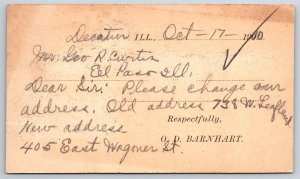 Decatur ILL., Oct-17-1900
Mr. Geo R. Curtis
El Paso Ill.
Dear Sir: Please change our
address. Old address 738 W. Leafland
Respectfully,
New address
O. D. BARNHART.
405 East Wagoner St.